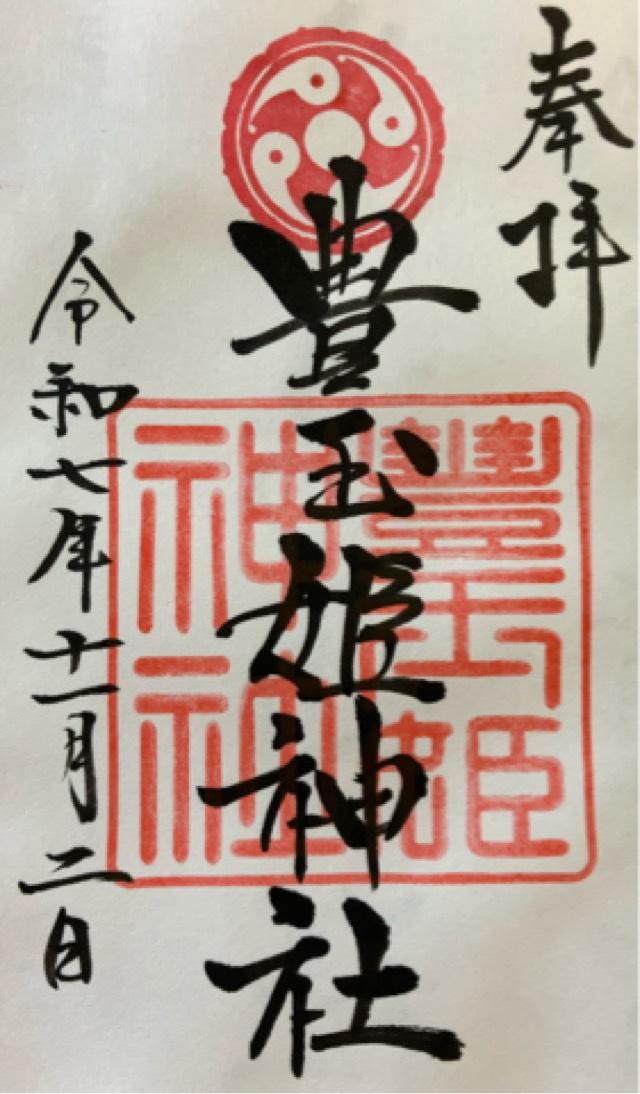 奉拝
豊玉姫神社
豊玉姫
神社
令和七年十一月二日